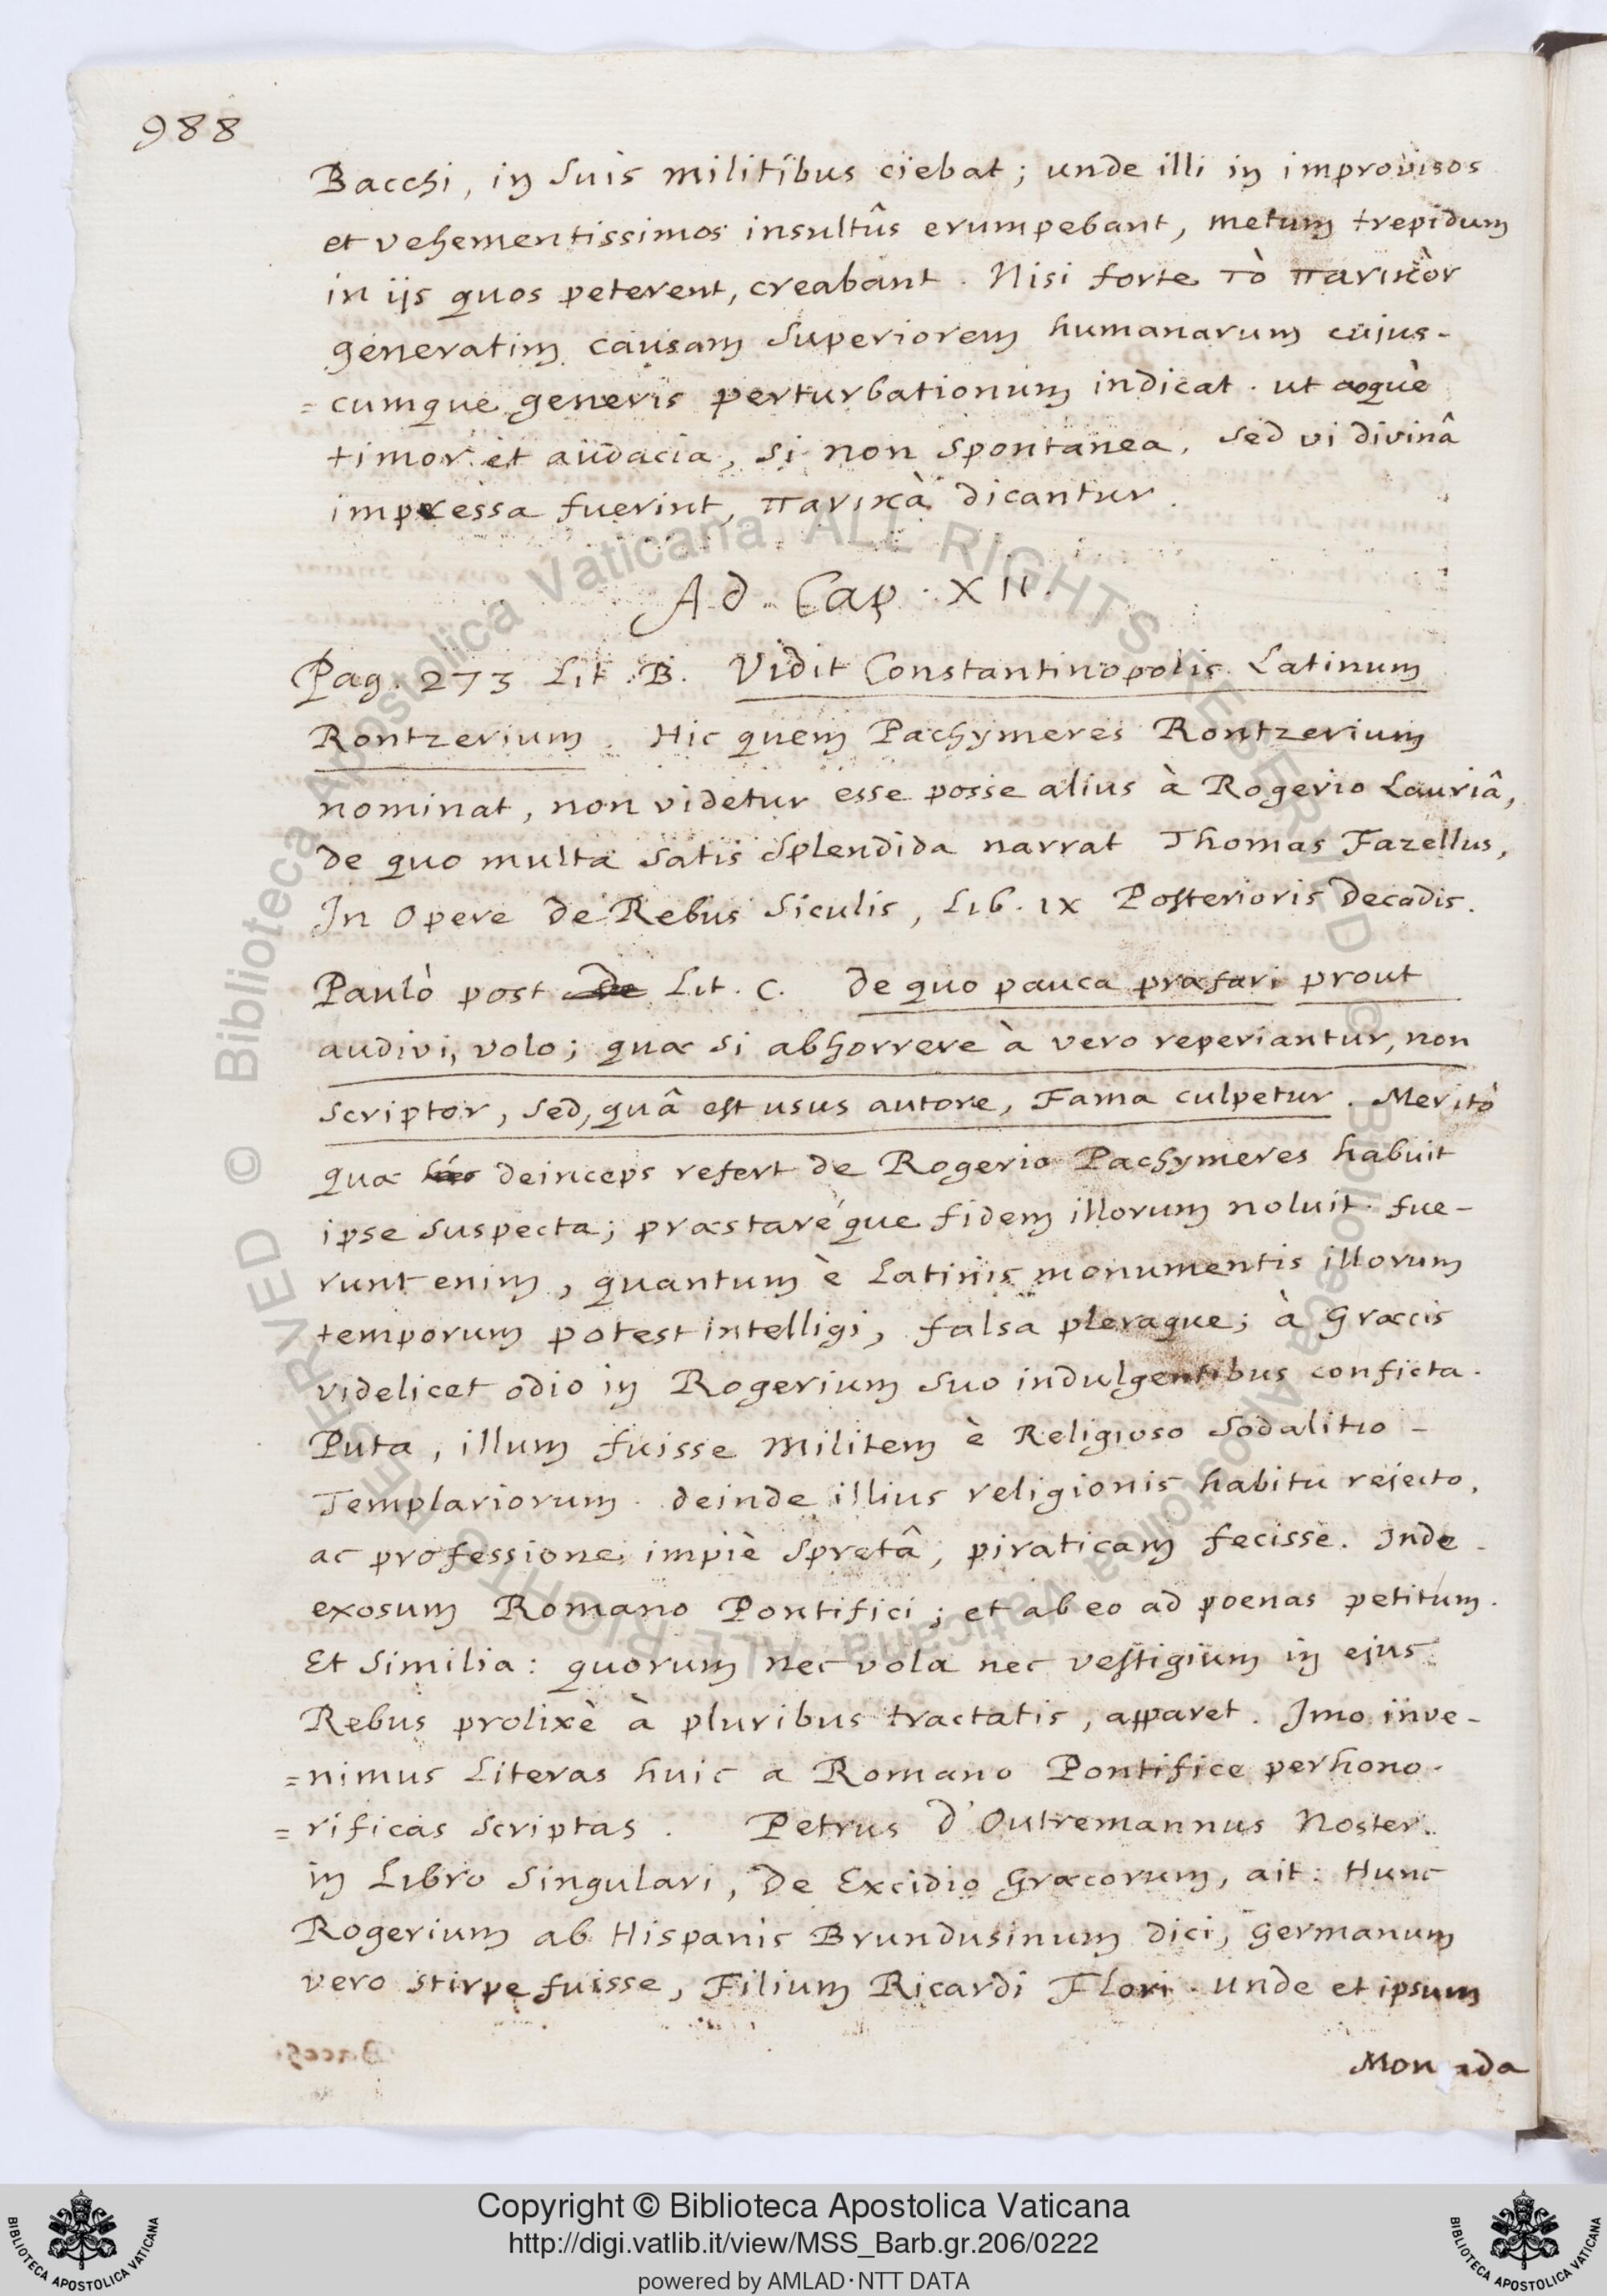 988
Bacchi, in suis militibus ciebat; unde illi in improvisos
et vehementissimos insultûs erumpebant, metum trepidum
in ijs quos peterent, creabant. Nisi forte τὸ πανικὸν
generatim causam superiorem humanarum cujus-
=cumque generis perturbationum indicat. ut æquè
timor et audacia, si non spontanea, sed vi divinâ
impressa fuerint, πανικὰ dicantur.
Ad Cap. XII.
Pag. 273 Lit. B. Vidit Constantinopolis Latinum
Rontzerium. Hic quem Pachymeres Rontzerium
nominat, non videtur esse posse alius à Rogerio Lauriâ,
de quo multa satis splendida narrat Thomas Fazellus,
In Opere de Rebus Siculis, Lib. IX Posterioris Decadis.
Paulò post de Lit. C. de quo pauca præfari prout
audivi, volo; quæ si abhorrere à vero reperiantur, non
scriptor, sed, quâ est usus autore, Fama culpetur. Meritò
quæ deinceps refert de Rogerio Pachymeres habuit
ipse suspecta; præstaréque fidem illorum noluit. fue-
runt enim, quantum è Latinis monumentis illorum
temporum potest intelligi, falsa pleraque; à Græcis
videlicet odio in Rogerium suo indulgentibus conficta.
Puta, illum fuisse militem è Religioso Sodalitio -
Templariorum. deinde illius religionis habitu rejecto,
ac professione impiè spretâ, piraticam fecisse. Inde
exosum Romano Pontifici; et ab eo ad poenas petitum.
Et similia: quorum nec vola nec vestigium in ejus
Rebus prolixè à pluribus tractatis, apparet. Imo inve-
=nimus Literas huic a Romano Pontifice perhono-
=rificas scriptas. Petrus d'Outremannus Noster.
in Libro singulari, De Excidio Græcorum, ait: Hunc
Rogerium ab Hispanis Brundusinum dici, germanum
vero stirpe fuisse, Filium Ricardi Flori. unde et ipsum
© Biblioteca Apostolica Vaticana ALL RIGHTS RESERVED © Biblioteca Apostolica Vaticana ALL RIGHTS RESERVED
Copyright © Biblioteca Apostolica Vaticana
http://digi.vatlib.it/view/MSS_Barb.gr.206/0222
powered by AMLAD·NTT DATA
BIBLIOTECA APOSTOLICA VATICANA
BIBLIOTECA APOSTOLICA VATICANA